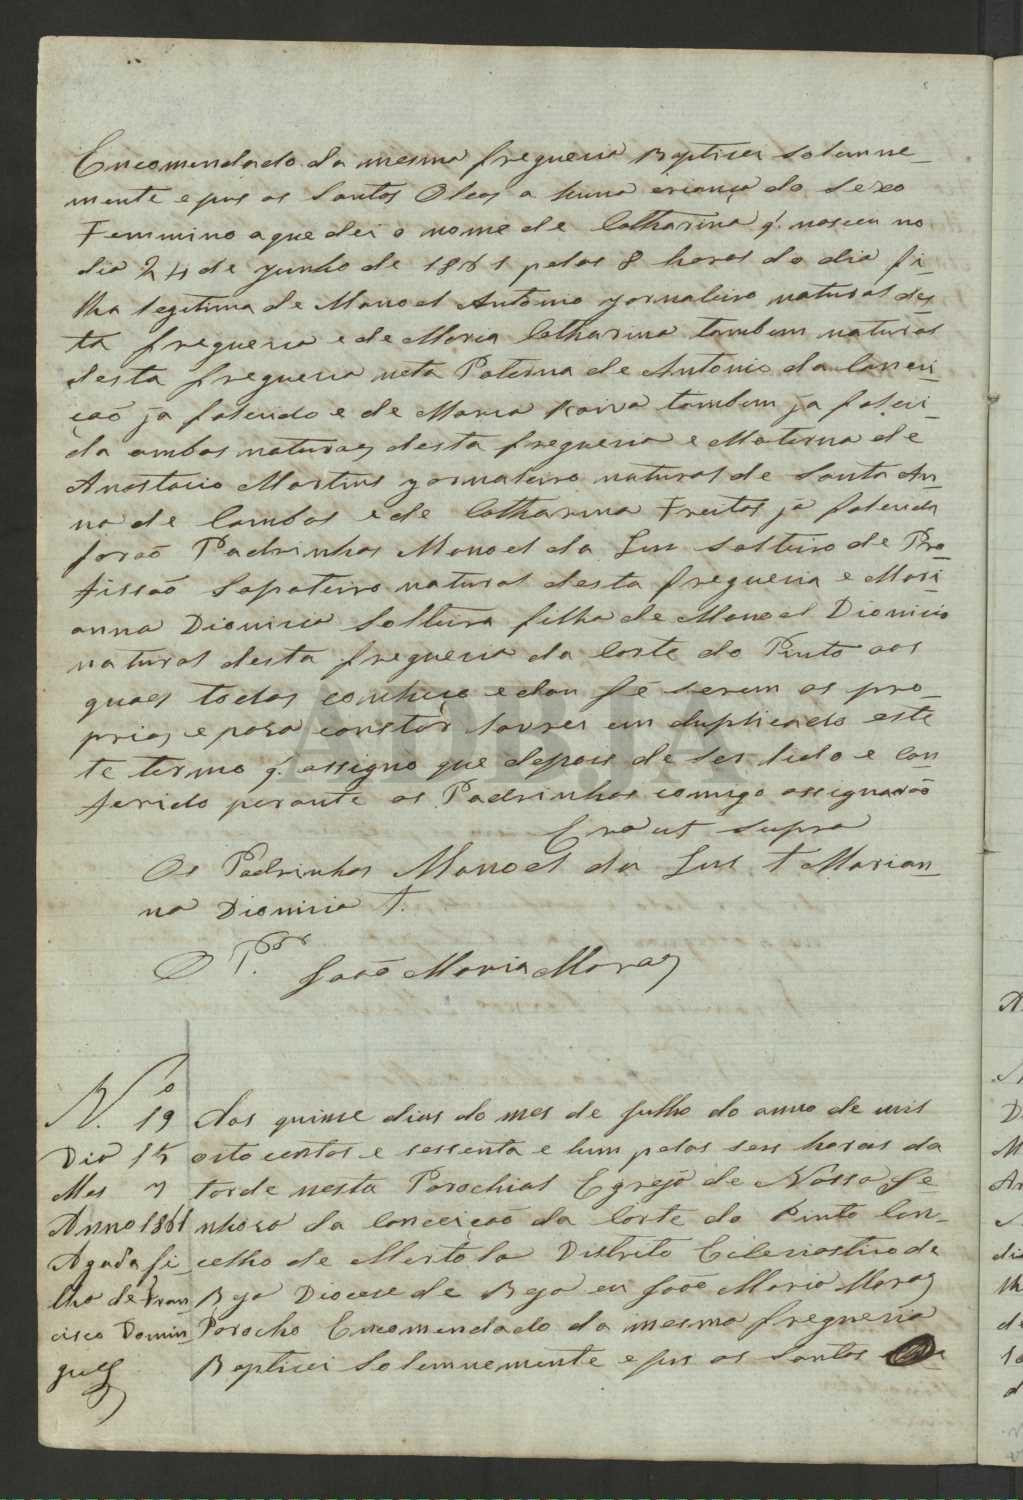 Encomendado da mesma freguesia Baptisei solemne-
mente e pus os Santos Oleos a huma criança do sexo
Feminino a que dei o nome de Catharina q. nasceu no
dia 24 de junho de 1861 pelas 8 horas do dia fi-
lha legitima de Manoel Antonio jornaleiro natural des-
ta freguesia e de Maria Catharina tambem natural
desta freguesia neta Paterna de Antonio da Concei-
ção ja falecido e de Maria tambem ja faleci-
da ambos naturaes desta freguesia e Materna de
Anastacio Martins jornaleiro natural de Santa An-
na de Cambas e de Catharina Freitas já falecida
forão Padrinhos Manoel da Lus solteiro de Pro-
fissão Sapateiro natural desta freguesia e Mari-
anna Dionisia Solteira filha de Manoel Dionisio
natural desta freguesia da Corte do Pinto aos
quaes todos conheço e dou fé serem os pro-
prios e para constar lavrei em duplicado este
te termo q. assigno que depois de ser lido e con-
ferido perante os Padrinhos comigo assignarão
Era ut supra
Os Padrinhos Manoel da Lus † Marian-
na Dionisia †.
O P.
João Maria Moraes
N.o 19
Dia 15
Mes 7
Anno 1861
Agada fi-
lha de Fran-
cisco Domin-
gues
Aos quinse dias do mes de Julho do anno de mil
oito centos e sessenta e hum pelas seis horas da
tarde nesta Parochial Egreja de Nossa Se-
nhora da Conceição da Corte do Pinto Con-
celho de Mertola Distrito Eclesiastico de
Beja Diocese de Beja eu João Maria Moraes
Parocho Encomendado da mesma freguesia
Baptisei Solemnemente e pus os Santos
ADBJA